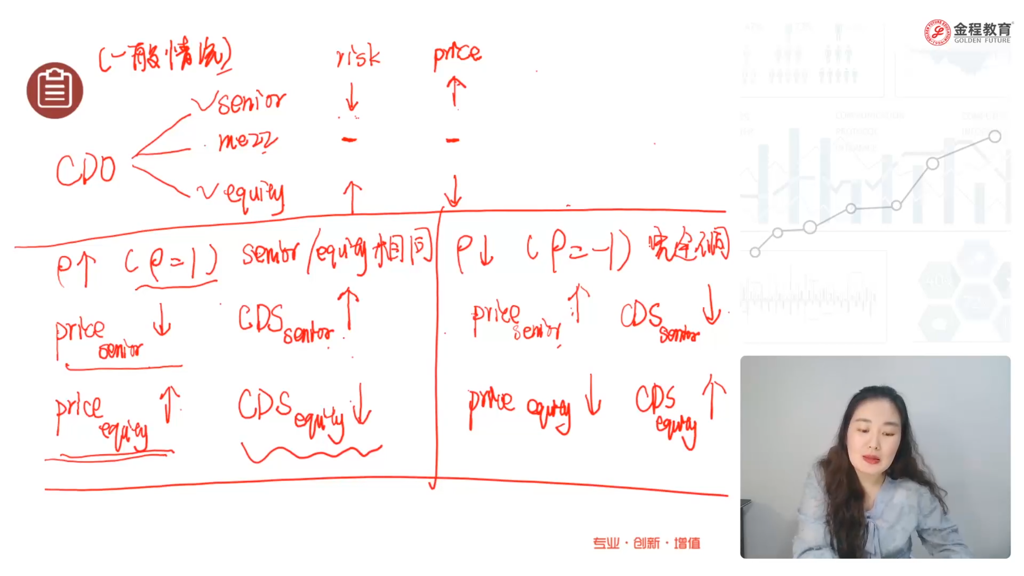 金程教育
GOLDEN FUTURE
(一般情况) risk price
senior ↓ ↑
CDO mezz - -
equity ↑ ↓
ρ↑ (ρ=1) senior/equity相同
price senior ↓ CDS senior ↑
price equity ↑ CDS equity ↓
ρ↓ (ρ=-1) 完全不同
price senior ↑ CDS senior ↓
price equity ↓ CDS equity ↑
专业·创新·增值